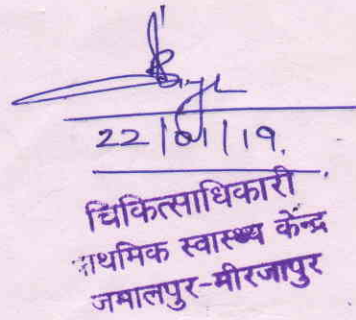 22/01/19.
चिकित्साधिकारी
प्राथमिक स्वास्थ्य केन्द्र
जमालपुर-मीरजापुर